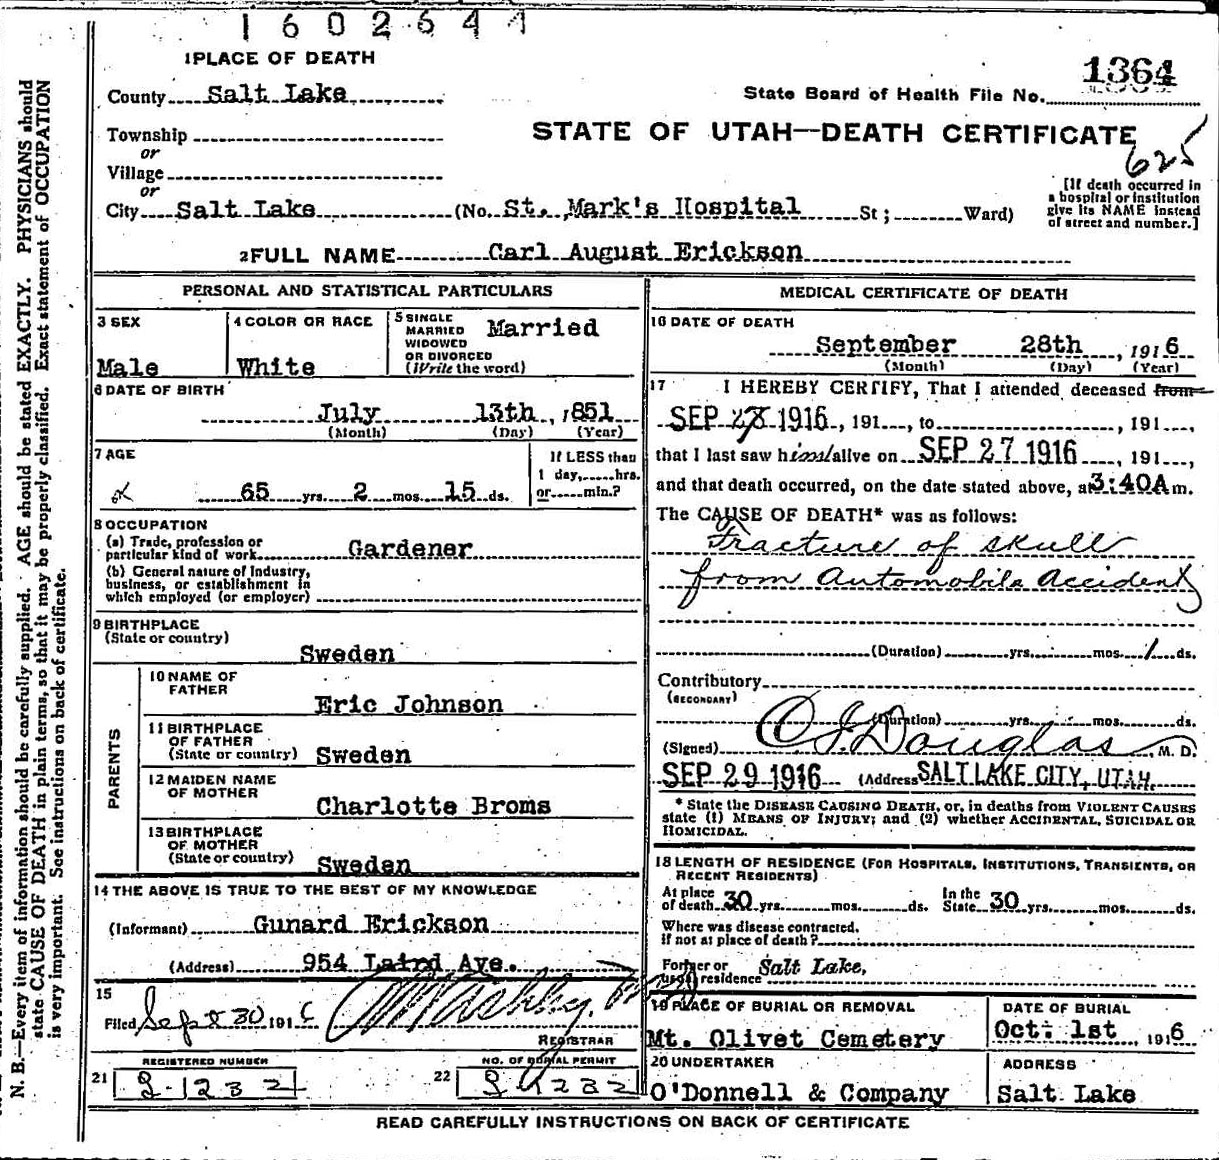 1602641
1 PLACE OF DEATH
County Salt Lake
State Board of Health File No. 1364
Township
or
Village
or
City Salt Lake (No. St. Mark's Hospital St; Ward)
STATE OF UTAH—DEATH CERTIFICATE
625
[If death occurred in
a hospital or institution
give its NAME instead
of street and number.]
2 FULL NAME Carl August Erickson
PERSONAL AND STATISTICAL PARTICULARS
3 SEX
Male
4 COLOR OR RACE
White
5 SINGLE
MARRIED
WIDOWED
OR DIVORCED
(Write the word)
Married
6 DATE OF BIRTH
July 13th, 1851
(Month) (Day) (Year)
7 AGE
65 yrs. 2 mos. 15 ds.
If LESS than
1 day, hrs.
or min.?
8 OCCUPATION
(a) Trade, profession or
particular kind of work Gardener
(b) General nature of Industry,
business, or establishment in
which employed (or employer)
9 BIRTHPLACE
(State or country)
Sweden
PARENTS
10 NAME OF
FATHER
Eric Johnson
11 BIRTHPLACE
OF FATHER
(State or country) Sweden
12 MAIDEN NAME
OF MOTHER
Charlotte Broms
13 BIRTHPLACE
OF MOTHER
(State or country) Sweden
14 THE ABOVE IS TRUE TO THE BEST OF MY KNOWLEDGE
(Informant) Gunard Erickson
(Address) 954 Laird Ave.
15
Filed Sept 30 1916
REGISTRAR
REGISTERED NUMBER
21 S-1232
NO. OF BURIAL PERMIT
22 S 1232
MEDICAL CERTIFICATE OF DEATH
16 DATE OF DEATH
September 28th, 1916
(Month) (Day) (Year)
17 I HEREBY CERTIFY, That I attended deceased from
SEP 27 1916, 191 , to , 191 ,
that I last saw him alive on SEP 27 1916 , 191 ,
and that death occurred, on the date stated above, at 3:40A m.
The CAUSE OF DEATH* was as follows:
Fracture of skull
from Automobile Accident
(Duration) yrs. mos. 1 ds.
Contributory
(SECONDARY)
(Duration) yrs. mos. ds.
(Signed) Douglas M. D.
SEP 29 1916 (Address SALT LAKE CITY, UTAH.
* State the DISEASE CAUSING DEATH, or, in deaths from VIOLENT CAUSES
state (1) MEANS OF INJURY; and (2) whether ACCIDENTAL, SUICIDAL OR
HOMICIDAL.
18 LENGTH OF RESIDENCE (FOR HOSPITALS, INSTITUTIONS, TRANSIENTS, OR
RECENT RESIDENTS)
At place
of death 30 yrs. mos. ds.
In the
State 30 yrs. mos. ds.
Where was disease contracted.
If not at place of death?
Former or
usual residence Salt Lake.
19 PLACE OF BURIAL OR REMOVAL
Mt. Olivet Cemetery
DATE OF BURIAL
Oct. 1st, 1916
20 UNDERTAKER
O'Donnell & Company
ADDRESS
Salt Lake
READ CAREFULLY INSTRUCTIONS ON BACK OF CERTIFICATE
N. B.—Every item of information should be carefully supplied. AGE should be stated EXACTLY. PHYSICIANS should
state CAUSE OF DEATH in plain terms, so that it may be properly classified. Exact statement of OCCUPATION
is very important. See instructions on back of certificate.